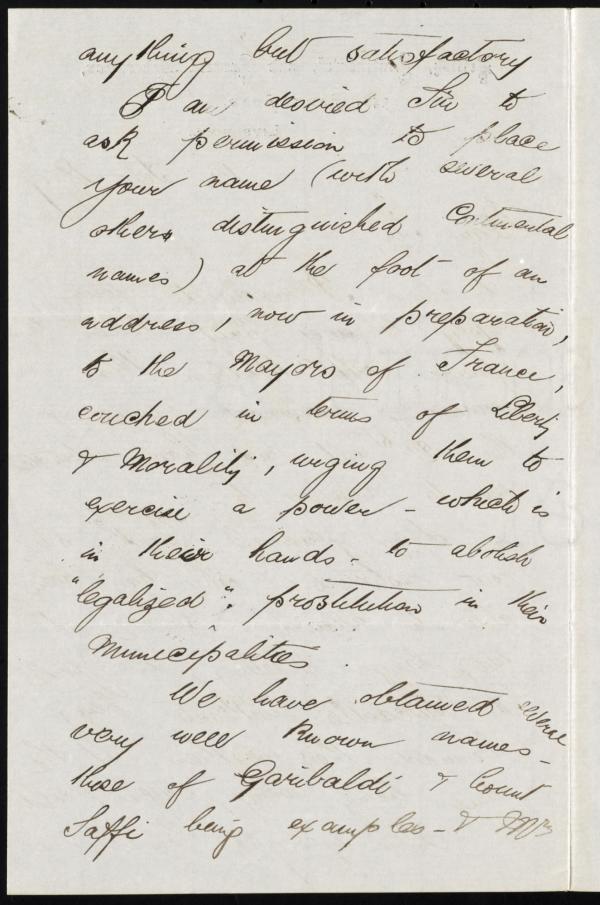 anything but satisfactory
I am desired Sir to
ask permission to place
your name (with several
other distinguished Continental
names) at the foot of an
address, now in preparation,
to the Mayors of France,
couched in terms of Liberty
& Morality, urging them to
exercise a power - which is
in their hands - to abolish
"legalized" prostitution in their
Municipalities.
We have obtained several
very well known names -
those of Garibaldi & Count
Saffi being examples - & Mrs